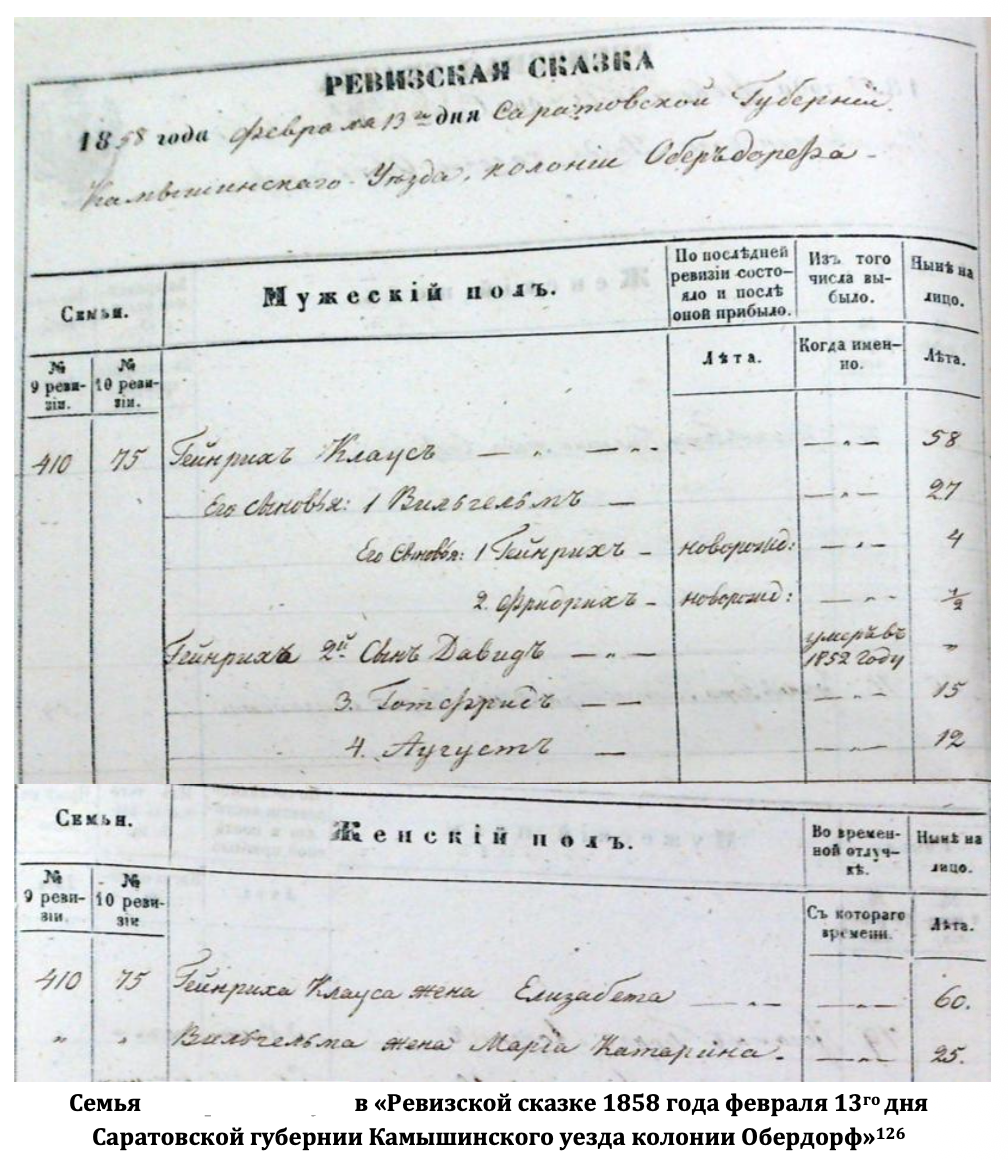 РЕВИЗСКАЯ СКАЗКА
1858 года февраля 13го дня Саратовской Губернiи
Камышинскаго Уѣзда, колонiи Оберъдорфа
Семьи.
Мужескiй полъ.
По послѣдней ревизiи состояло и послѣ оной прибыло.
Изъ того числа выбыло.
Нынѣ на лицо.
№ 9 ревизiи.
№ 10 ревизiи.
Лѣта.
Когда именно.
Лѣта.
410 75 Гейнрихъ Клаусъ — „ — „ — „ — 58
Его Сыновья: 1 Вильгельмъ — — „ — 27
Его Сыновья: 1 Гейнрихъ - новорожд: — „ — 4
2. Фридрихъ - новорожд: — „ — 1/2
Гейнриха 2й Сынъ Давидъ — „ — умеръ въ 1852 году „
3. Готфридъ — — — „ — 15
4. Аугустъ — — „ — 12
Семьи.
Женскiй полъ.
Во временной отлучкѣ.
Нынѣ на лицо.
№ 9 ревизiи.
№ 10 ревизiи
Съ котораго времени.
Лѣта.
410 75 Гейнриха Клауса жена Елизабета — „ — — „ — 60.
„ „ Вильгельма жена Марiа Катарина. — „ — 25.
Семья в «Ревизской сказке 1858 года февраля 13го дня
Саратовской губернии Камышинского уезда колонии Обердорф»126